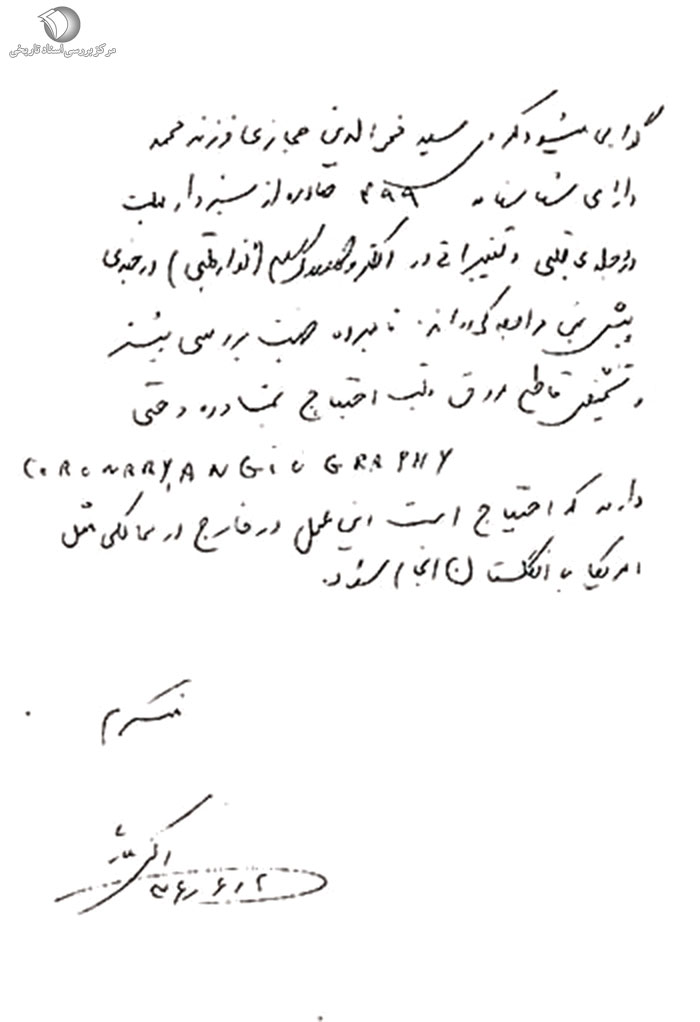 مرکز بررسی اسناد تاریخی
گواهی میشود که آقای سید فخرالدین حجازی فرزند محمد
دارای شناسنامه ۴۹۹ صادره از سبزوار بعلت
قلبی و تغییراتی در الکتروکاردیوگرام (نوار قلبی) در چندی
پیش به من مراجعه کرده‌اند. نامبرده جهت بررسی بیشتر
و تشخیص قاطع عروق قلب احتیاج حتی
CORONARY ANGIOGRAPHY
دارند که احتیاج است این عمل در خارج در ممالکی مثل
امریکا یا انگلستان انجام شود.